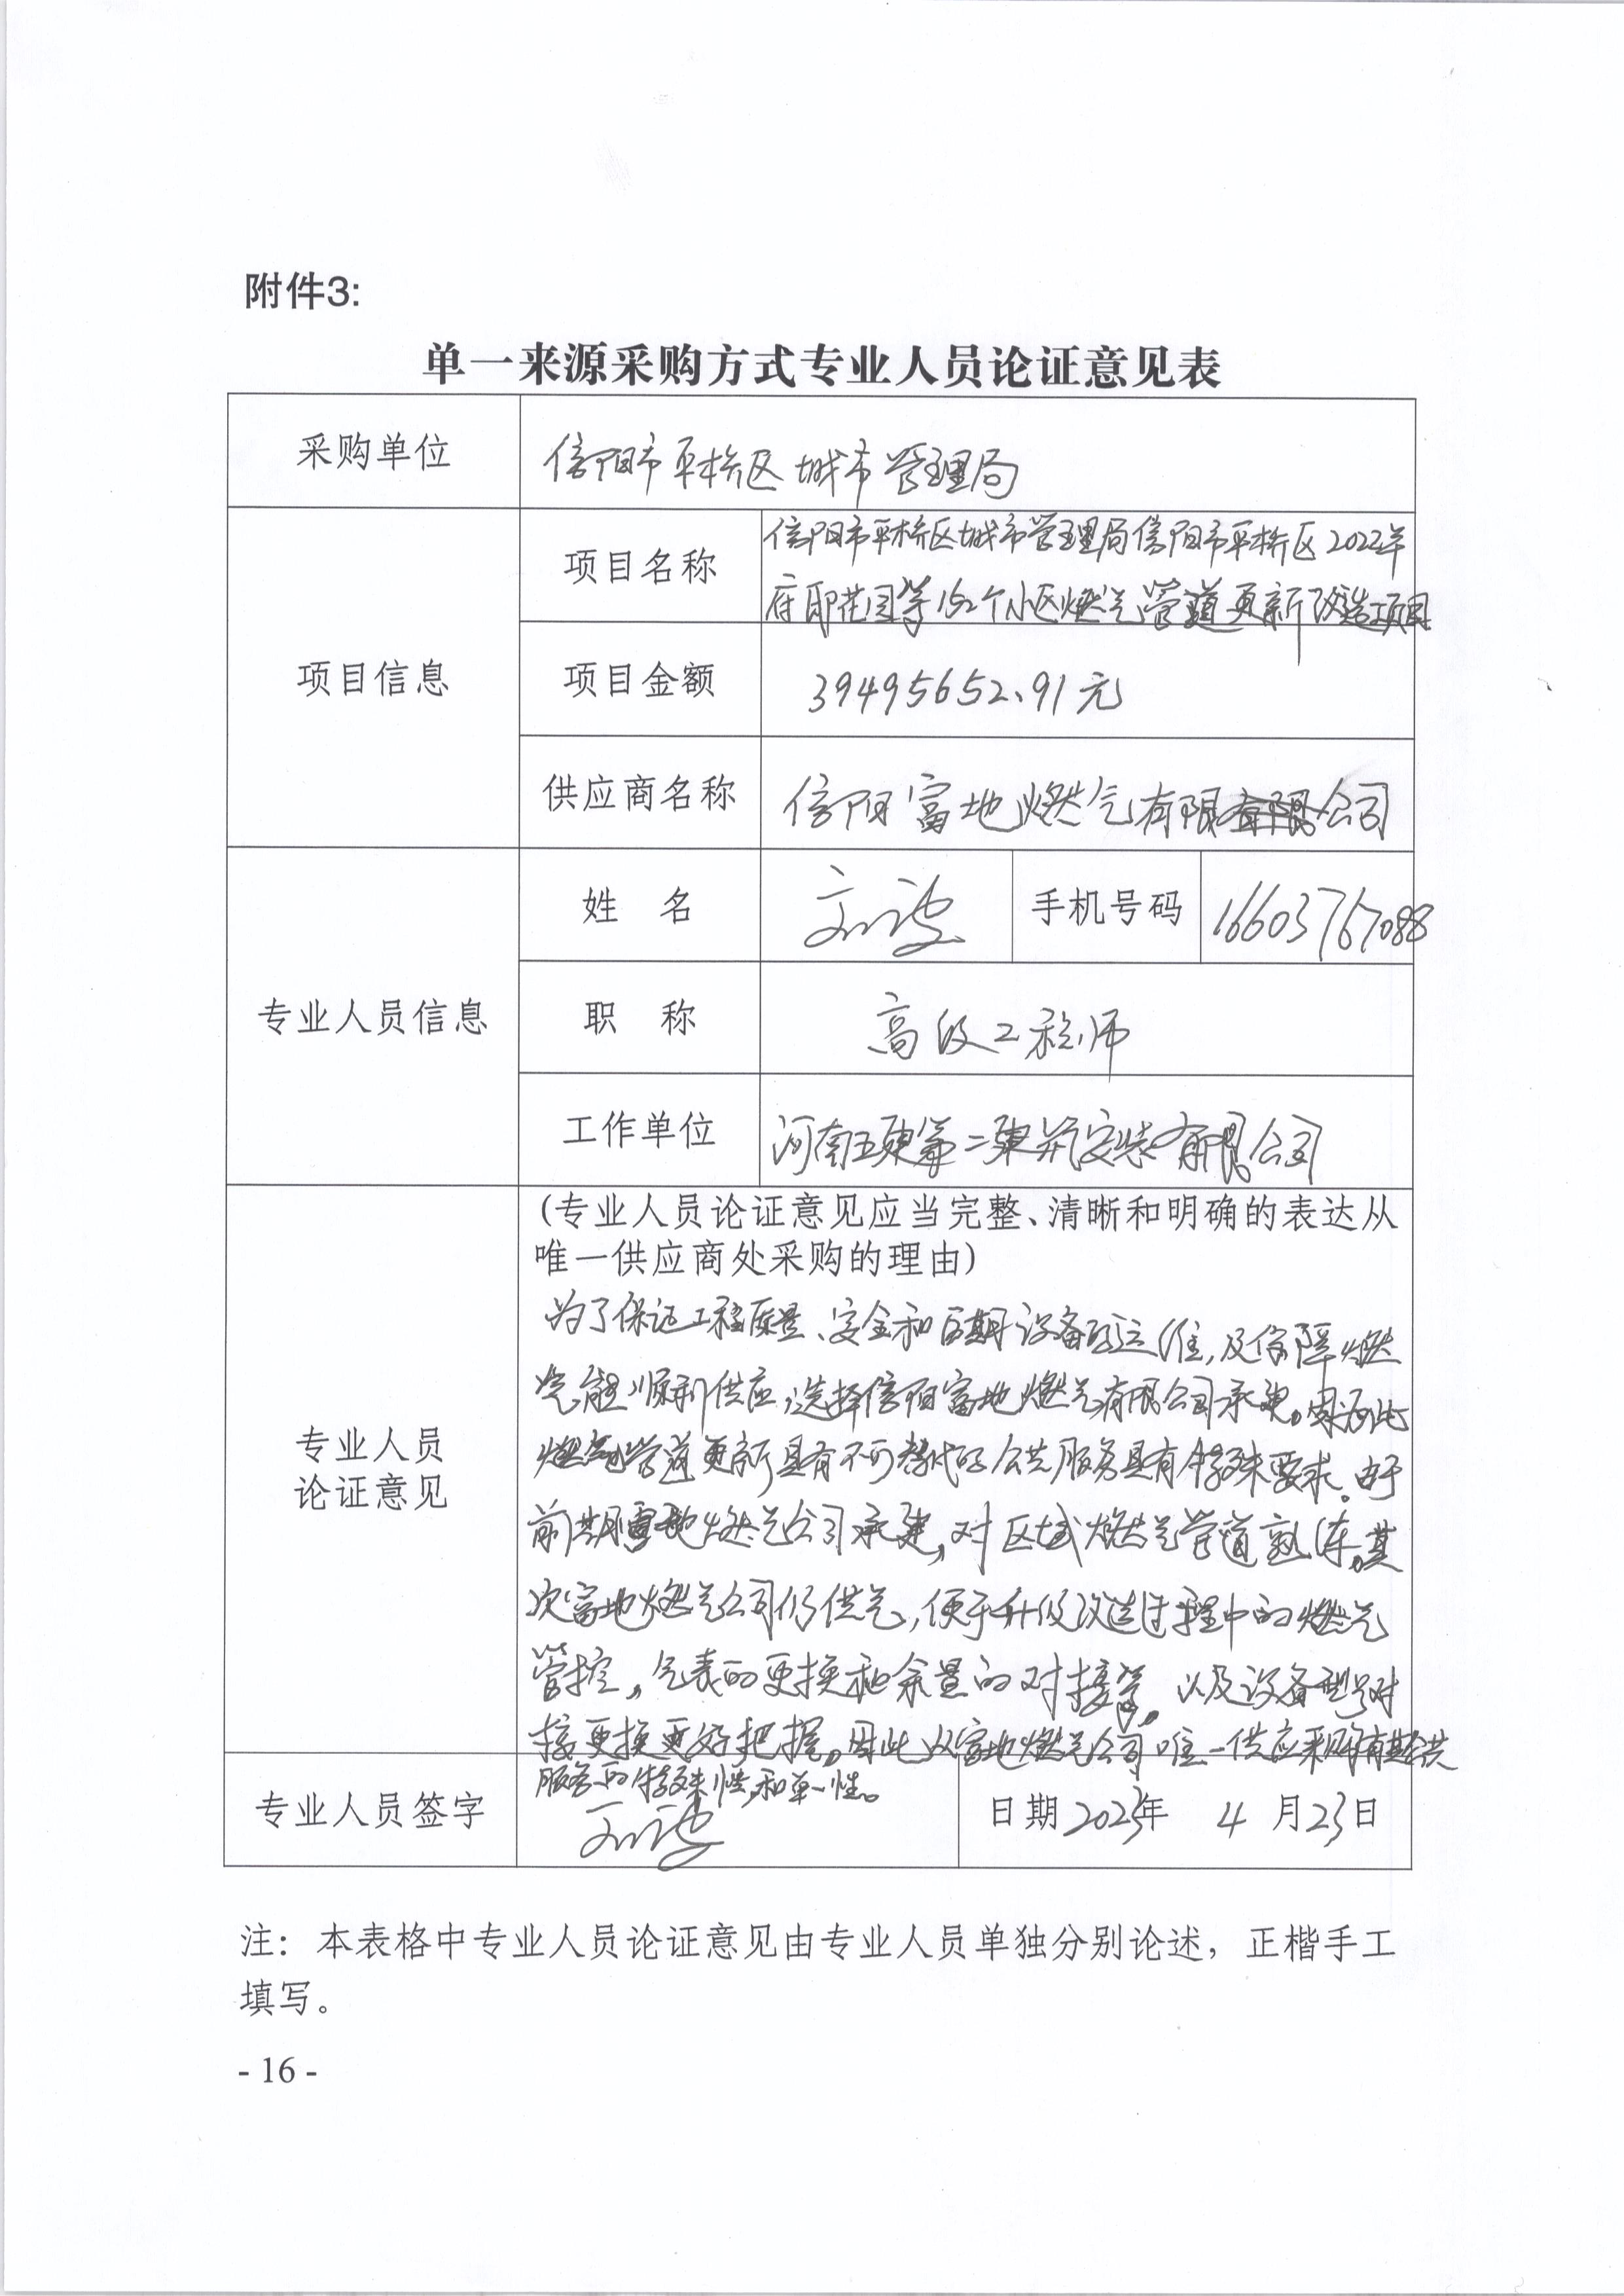 附件3:
单一来源采购方式专业人员论证意见表
采购单位 信阳市平桥区城市管理局
项目信息 项目名称 信阳市平桥区城市管理局信阳市平桥区2022年
府邸花园等152个小区燃气管道更新改造项目
项目金额 39495652.91元
供应商名称 信阳富地燃气有限公司
专业人员信息 姓 名 手机号码 16603767088
职 称 高级工程师
工作单位 河南五建第二建筑安装有限公司
专业人员
论证意见
(专业人员论证意见应当完整、清晰和明确的表达从
唯一供应商处采购的理由)
为了保证工程质量、安全和后期设备的运维,及保障燃
气能顺利供应,选择信阳富地燃气有限公司承建。因为此
燃气管道更新具有不可替代的公共服务具有特殊要求。由于
前期富地燃气公司承建,对区域燃气管道熟练。其
次富地燃气公司仍供气,便于升级改造过程中的燃气
管控,气表的更换和余量的对接等。以及设备型号对
接更换更好把握。因此从富地燃气公司唯一供应采购有其公共
服务的特殊性和单一性。
专业人员签字 日期 2023年 4 月 23 日
注：本表格中专业人员论证意见由专业人员单独分别论述，正楷手工
填写。
- 16 -